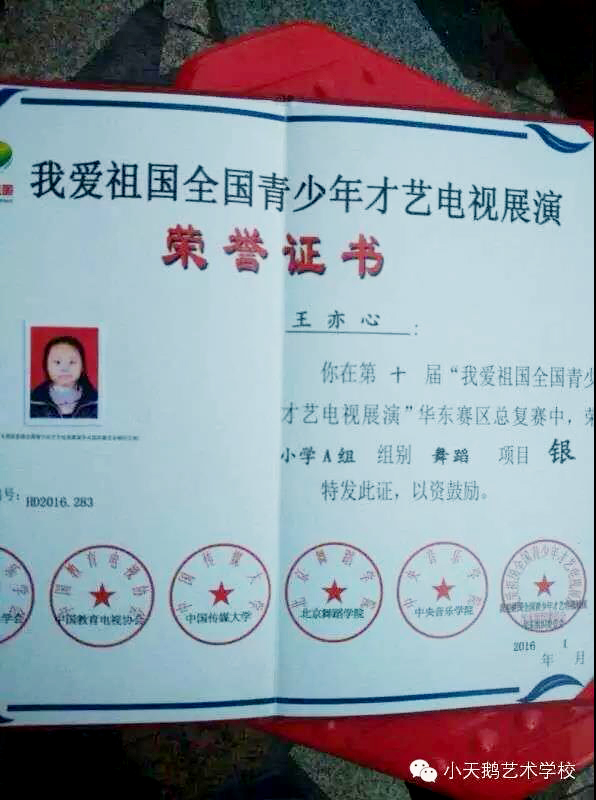 我爱祖国全国青少年才艺电视展演
荣誉证书
王亦心:
你在第 十 届“我爱祖国全国青少
才艺电视展演”华东赛区总复赛中，荣
小学A组 组别 舞蹈 项目 银
特发此证，以资鼓励。
号: HD2016.283
学会
中国教育电视协会
中国教育电视协会
中国传媒大学
中国传媒大学
北京舞蹈学院
北京舞蹈学院
中央音乐学院
中央音乐学院
2016 1
年 月
小天鹅艺术学校